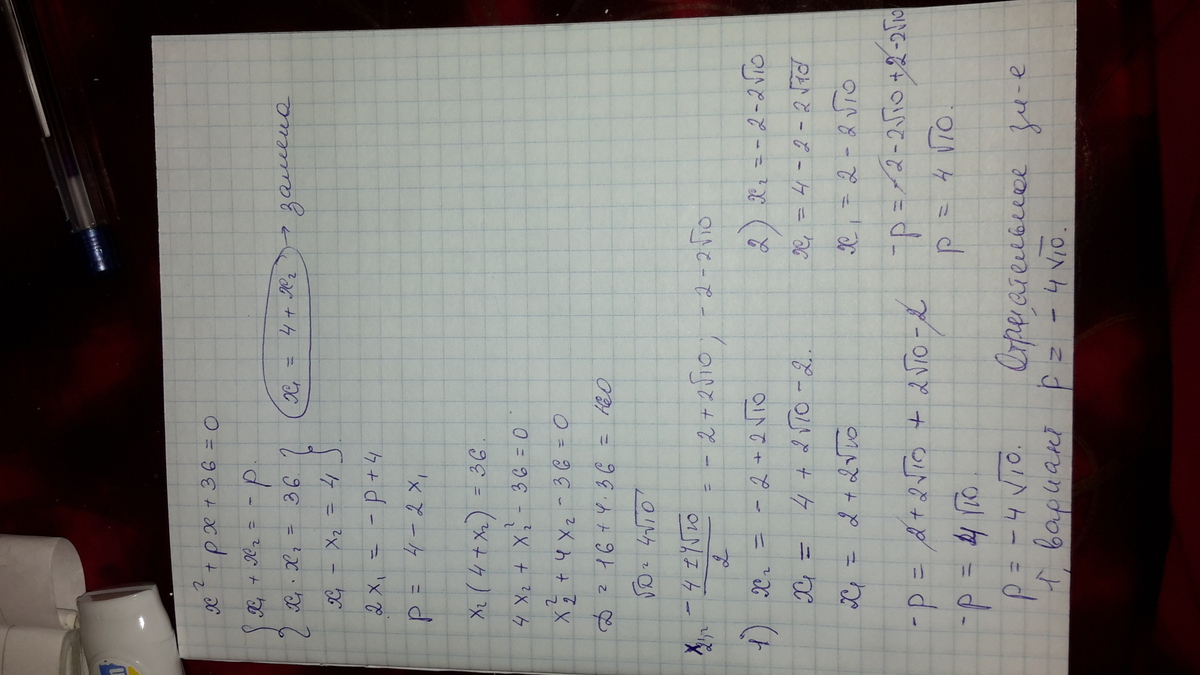 x² + px + 36 = 0
x₁ + x₂ = - p.
x₁ · x₂ = 36.
x₁ - x₂ = 4
x₁ = 4 + x₂ → замена
2x₁ = - p + 4
p = 4 - 2x₁
x₂ (4 + x₂) = 36.
4x₂ + x₂² - 36 = 0
x₂² + 4x₂ - 36 = 0
D = 16 + 4·36 =
√D = 4√10
- 4 ± 4√10 / 2 = - 2 + 2√10 ; - 2 - 2√10
1) x₂ = - 2 + 2√10
x₁ = 4 + 2√10 - 2.
x₁ = 2 + 2√10
- p = 2 + 2√10 + 2√10 - 2
- p = 4√10.
p = - 4√10.
1, вариант
2) x₂ = - 2 - 2√10
x₁ = 4 - 2 - 2√10
x₁ = 2 - 2√10
- p = - 2 - 2√10 + 2 - 2√10
p = 4√10.
Отрицательное зн-е
p = - 4√10.